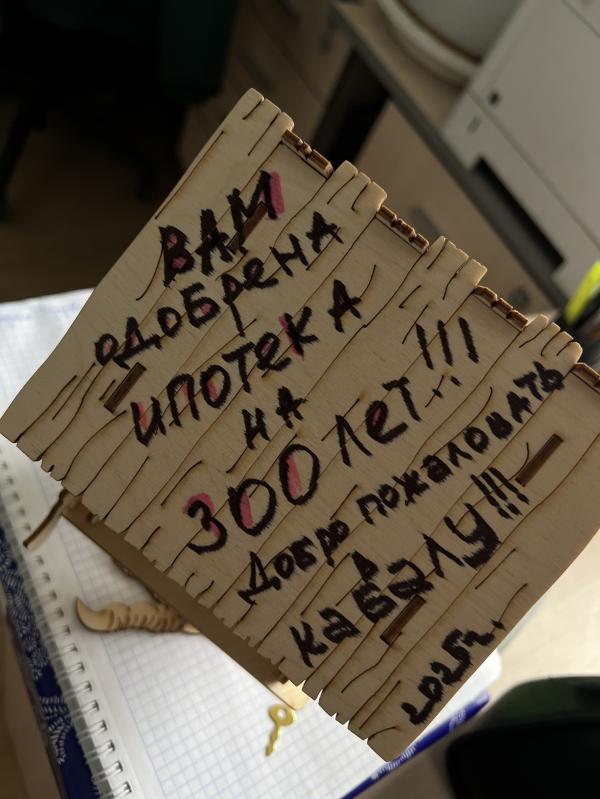 ВАМ
ОДОБРЕНА
ИПОТЕКА
НА
300 ЛЕТ!!!
ДОБРО ПОЖАЛОВАТЬ
В
КАБАЛУ!!!
2025г.